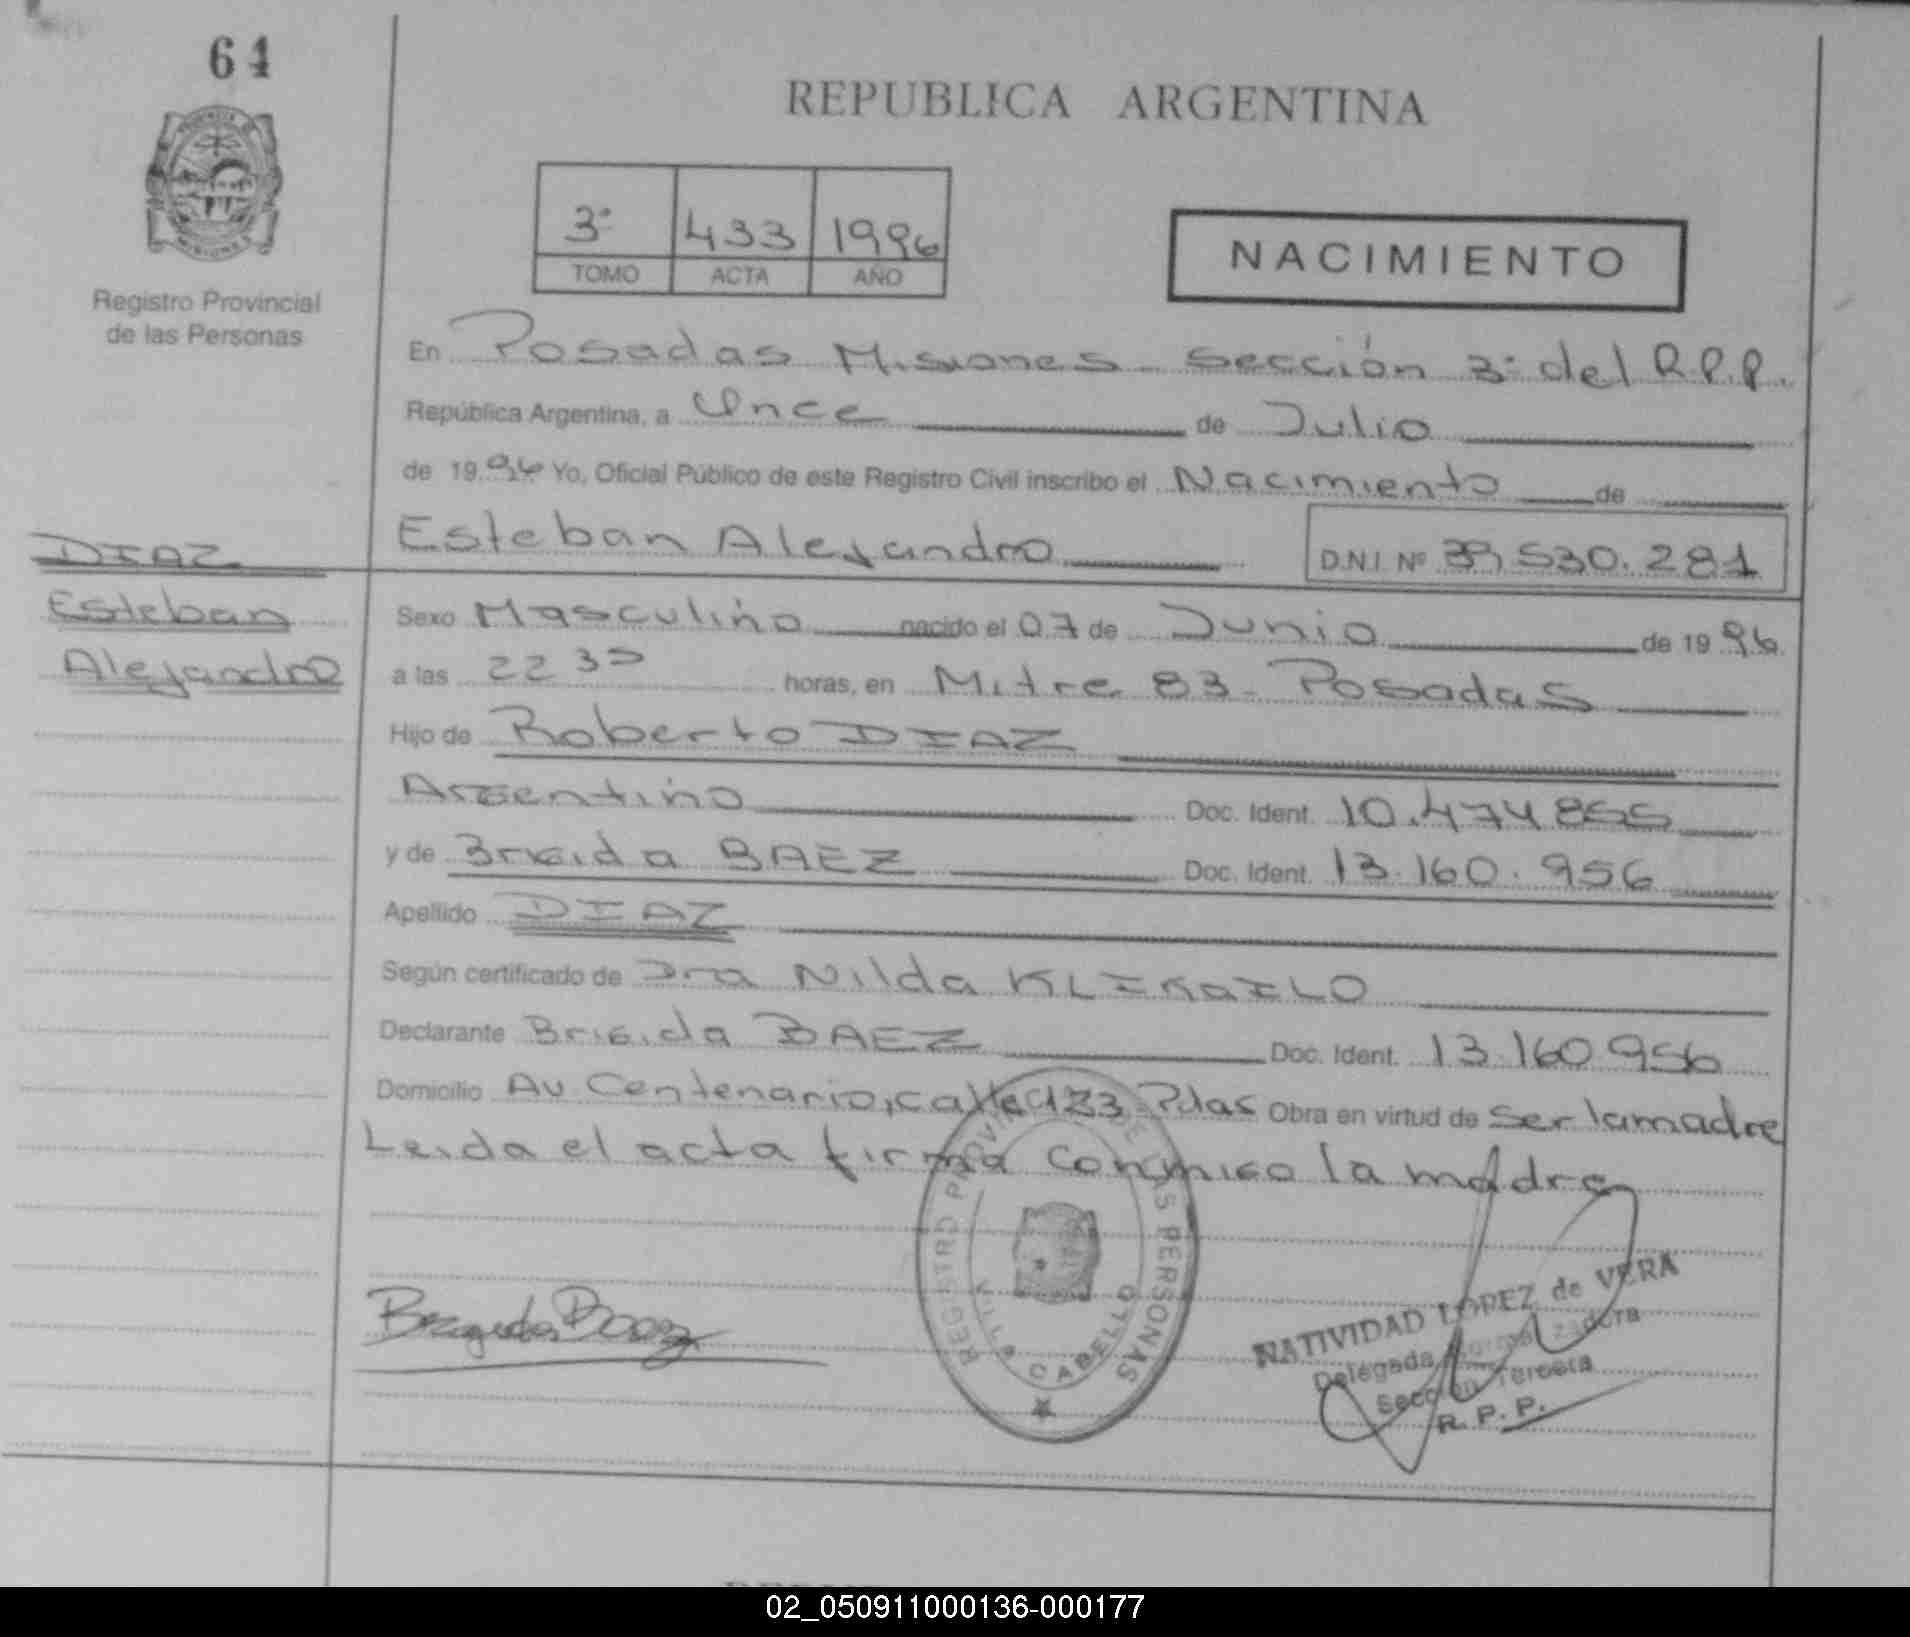 64
REPUBLICA ARGENTINA
3º 433 1996
TOMO ACTA AÑO
NACIMIENTO
Registro Provincial
de las Personas
En Posadas Misiones - Sección 3º del R.P.P.
República Argentina, a Once de Julio
de 1996 Yo, Oficial Público de este Registro Civil inscribo el Nacimiento de
Esteban Alejandro D.N.I. Nº 39.530.281
DIAZ
Esteban
Alejandro
Sexo Masculino nacido el 07 de Junio de 1996
a las 22 35 horas, en Mitre 83 - Posadas
Hijo de Roberto DIAZ
Argentino Doc. Ident. 10.474855
y de Brigida BAEZ Doc. Ident. 13.160.956
Apellido DIAZ
Según certificado de Dra Nilda
Declarante Brigida BAEZ Doc. Ident. 13.160956
Domicilio Av Centenario, calle 123 - Pdas Obra en virtud de Ser la madre
Leida el acta firma conmigo la madre
REGISTRO PROVINCIAL DE LAS PERSONAS
VILLA CABELLO
NATIVIDAD LOPEZ de VERA
Delegada Normalizadora
Sección Tercera
R. P. P.
02_050911000136-000177